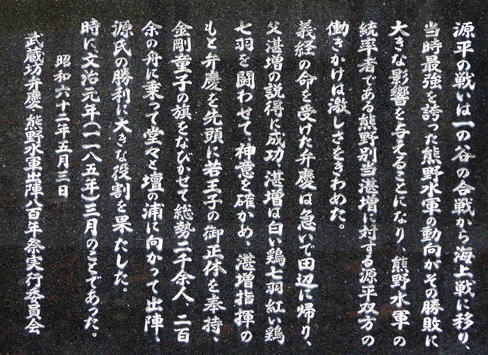 源平の戦いは一の谷の合戦から海上戦に移り、
当時最強を誇った熊野水軍の動向がその勝敗に
大きな影響を与えることになり、熊野水軍の
統率者である熊野別当湛増に対する源平双方の
働きかけは激しさをきわめた。
義経の命を受けた弁慶は急いで田辺に帰り、
父湛増の説得に成功、湛増は白い鶏七羽紅い鶏
七羽を闘わせて、神意を確かめ、湛増指揮の
もと弁慶を先頭に若王子の御正体を奉持、
金剛童子の旗をなびかせて、総勢二千余人、二百
余の舟に乗って堂々と壇の浦に向かって出陣、
源氏の勝利に大きな役割を果たした。
時に、文治元年(一一八五年)三月のことであった。
昭和六十二年五月三日
武蔵坊弁慶・熊野水軍出陣八百年祭実行委員会